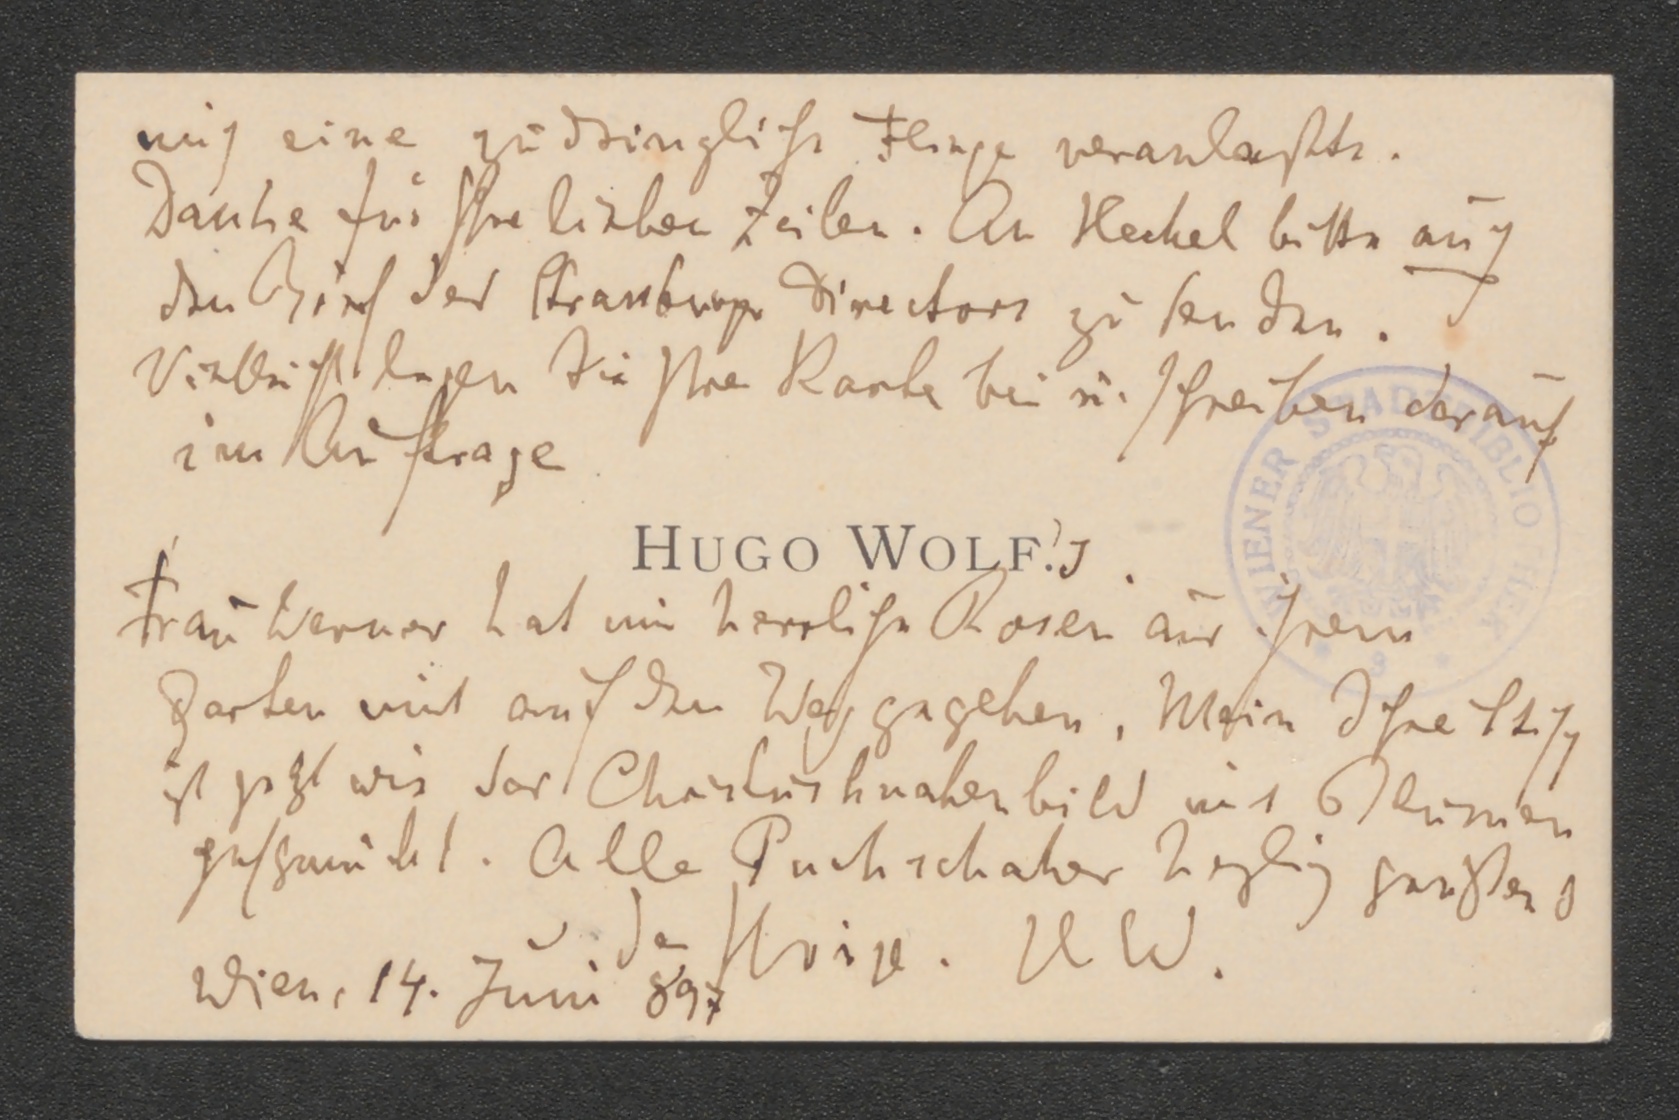 mich eine zudringliche Fliege veranlaßte.
Danke für Ihre lieben Zeilen. An Heckel bitte auch
den Brief des Strassburger Directors zu senden.
Vielleicht legen Sie Ihre Karte bei u. schreiben darauf
im Auftrage
HUGO WOLF.
Frau Werner hat mir herrliche Rosen aus ihrem
Garten mit auf den Weg gegeben. Mein Schreibtisch
ist jetzt wie das Christusknabenbild mit Blumen
geschmückt. Alle Puchschaber herzlich grüßend
der Ihrige. HW.
Wien, 14. Juni 897
WIENER STADTBIBLIOTHEK
* 3 *